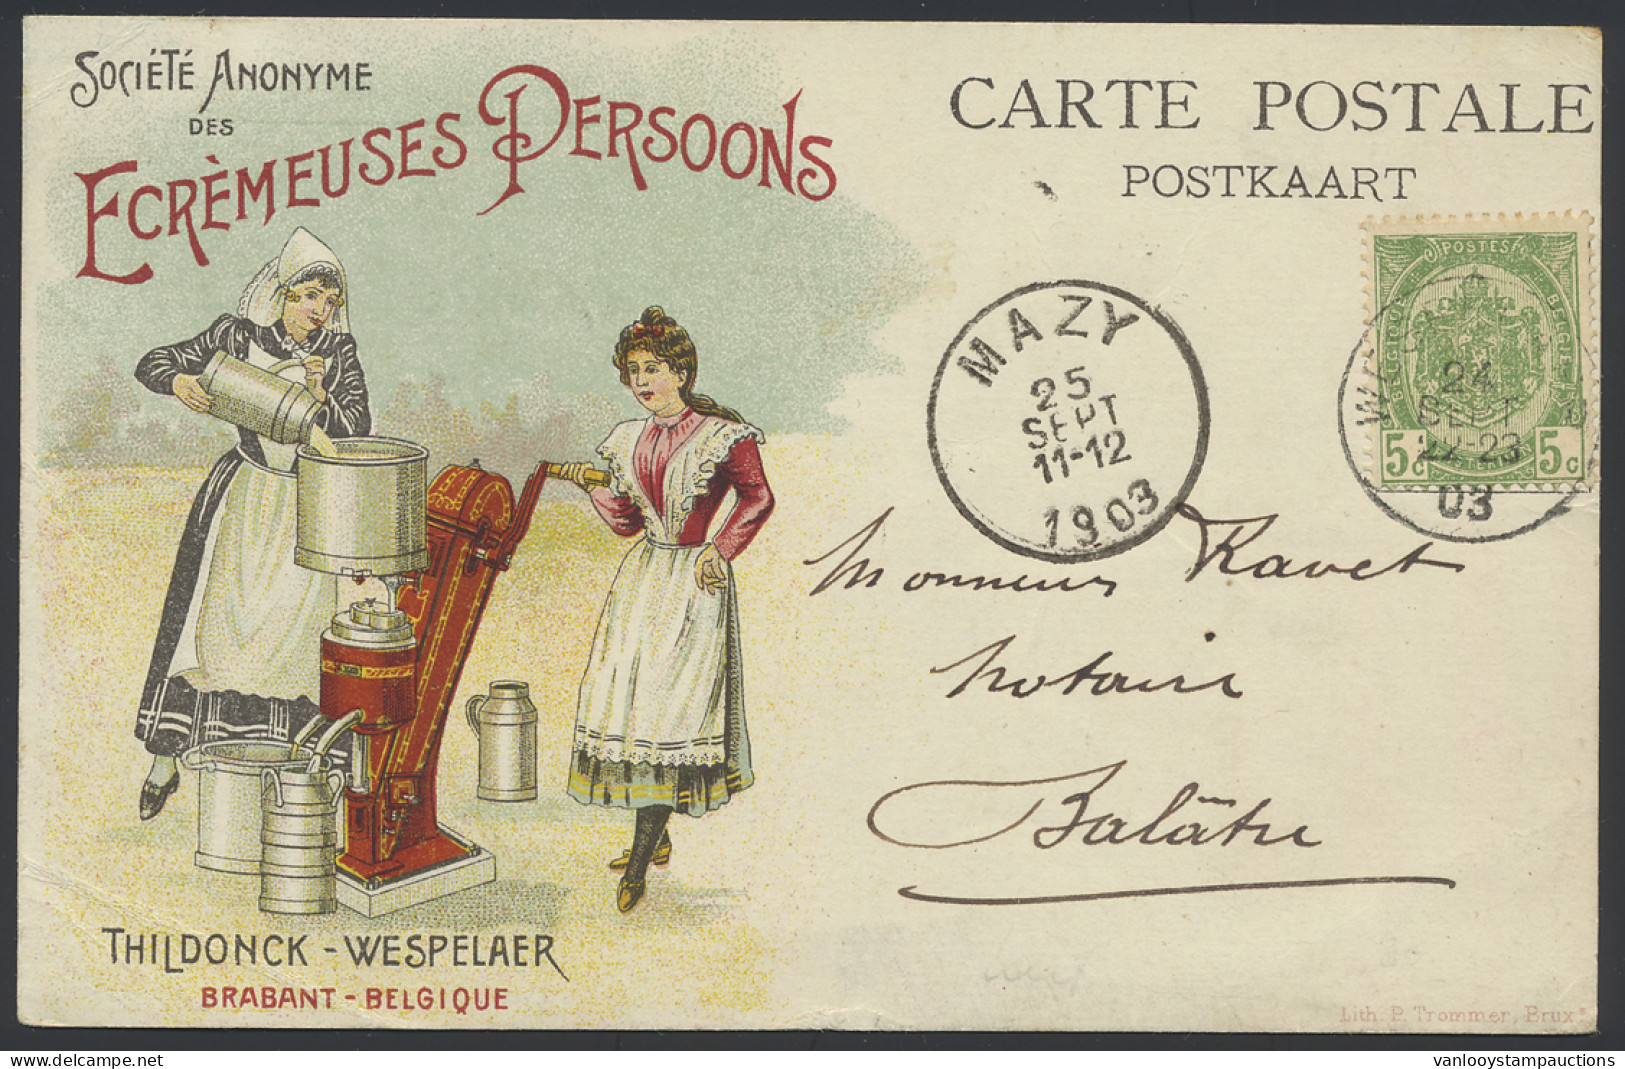 SOCIÉTÉ ANONYME
DES
ECRÈMEUSES PERSOONS
CARTE POSTALE
POSTKAART
POSTES
BELGIQUE
BELGIE
5c 5c
24
SEPT
22-23
03
MAZY
25
SEPT
11-12
1903
Monsieur Ravet
Notaire
Balâtre
THILDONCK - WESPELAER
BRABANT - BELGIQUE
Lith. P. Trommer, Brux.
delcampe.net
vanlooystampauctions